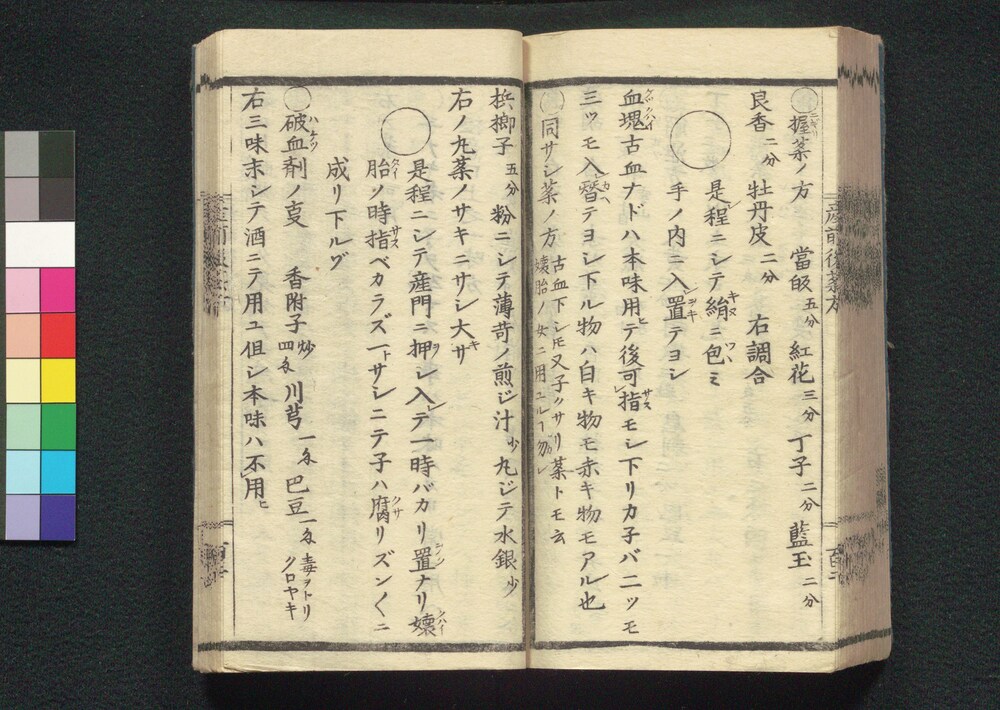 ○握薬ノ方 當皈五分 紅花三分 丁子二分 藍玉二分
良香二分 牡丹皮二分 右調合
是程ニシテ絹ニ包ミ
手ノ内ニ入置テヨシ
血塊古血ナドハ本味用テ後可指モシ下リカ子バ二ツモ
三ツモ入替テヨシ下ル物ハ白キ物モ赤キ物モアル也
○同サシ薬ノ方 古血下シニモ又子クサリ薬トモ云
壊胎ノ女ニ用ユルヿ勿レ
梹榔子五分 粉ニシテ薄苛ノ煎ジ汁少 丸ジテ水銀少
右ノ丸薬ノサキニサシ大サ
是程ニシテ産門ニ押シ入テ一時バカリ置ナリ壊
胎ノ時指ベカラズ一トサシニテ子ハ腐リズン〱ニ
成リ下ルヿ
○破血剤ノ叓 香附子炒四匁 川芎一匁 巴豆一匁毒ヲトリクロヤキ
右三味末シテ酒ニテ用ユ但シ本味ハ不用
産前後薬方